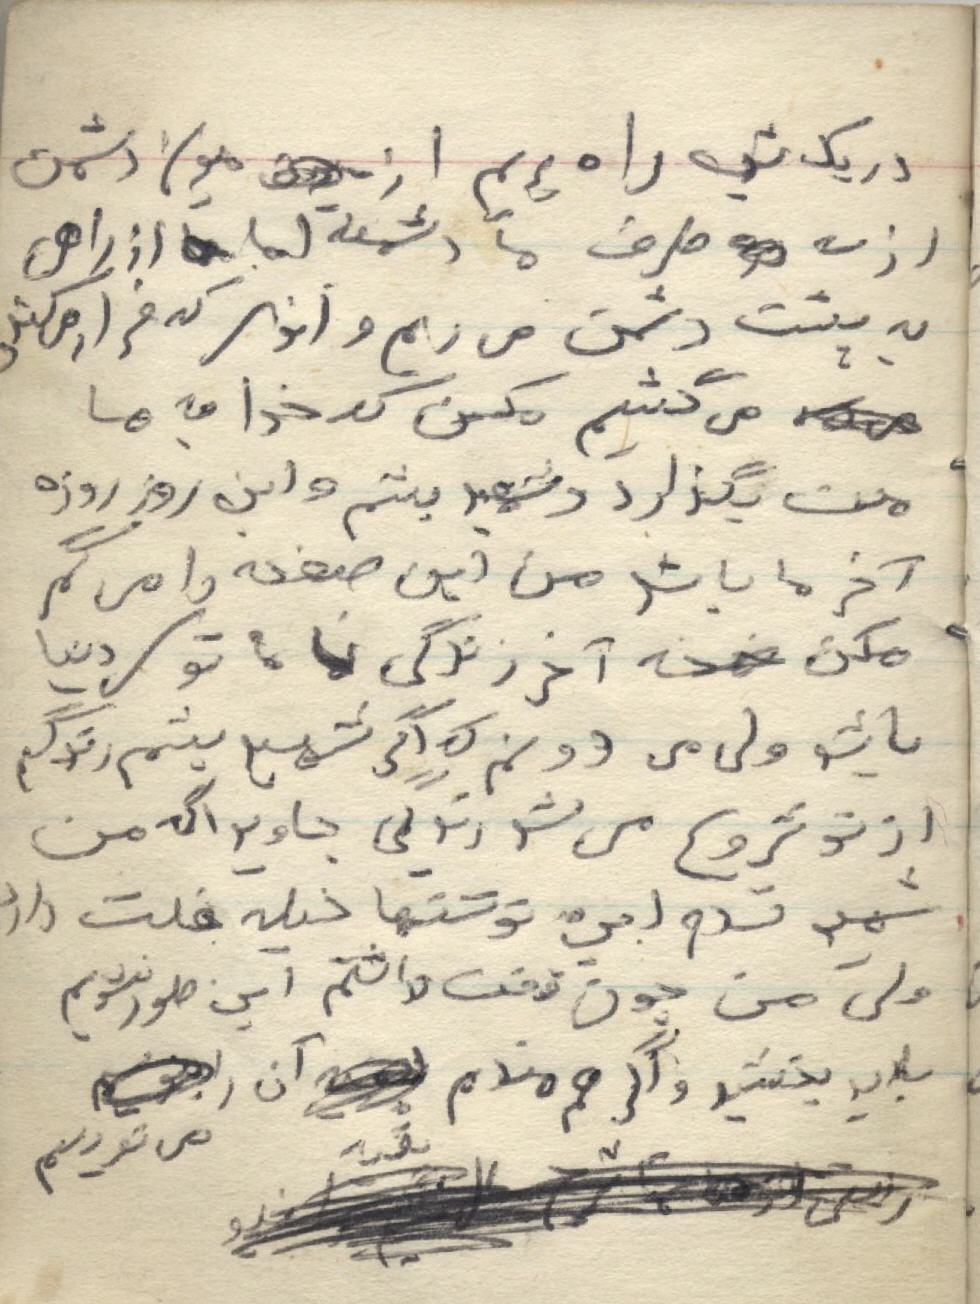 در یک شب راه بریم از میون دشمن
از سه طرف ما دشمنه اما از راهی
به پشت دشمن می ریم و آنهای که فرار می کنند
می کشیم ممکن که خدا به ما
منت بگذارد و شهید بشم و این روز روزه
آخر ما باشد من این صفحه را می گم
ممکن آخر زندگی ما توی دنیا
باشد ولی می دونم که اگر شهید بشم زندگیم
از نو شروع می شد زندگی جاوید اگه من
شهید شدم این نوشتها خیلی غلت دارد
ولی من چون وقت نداشتم این طور
باید بخشید و اگر هم مندم آن را
بقیه می نویسم